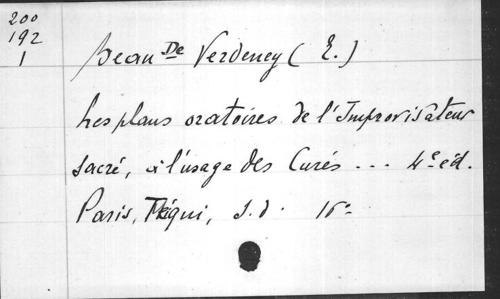 200
192
1
Beau De Verdeney (E.)
Les plans oratoires de l'Improvisateur
sacré, à l'usage des Curés ... 4e éd.
Paris, Téqui, s.d. 16°